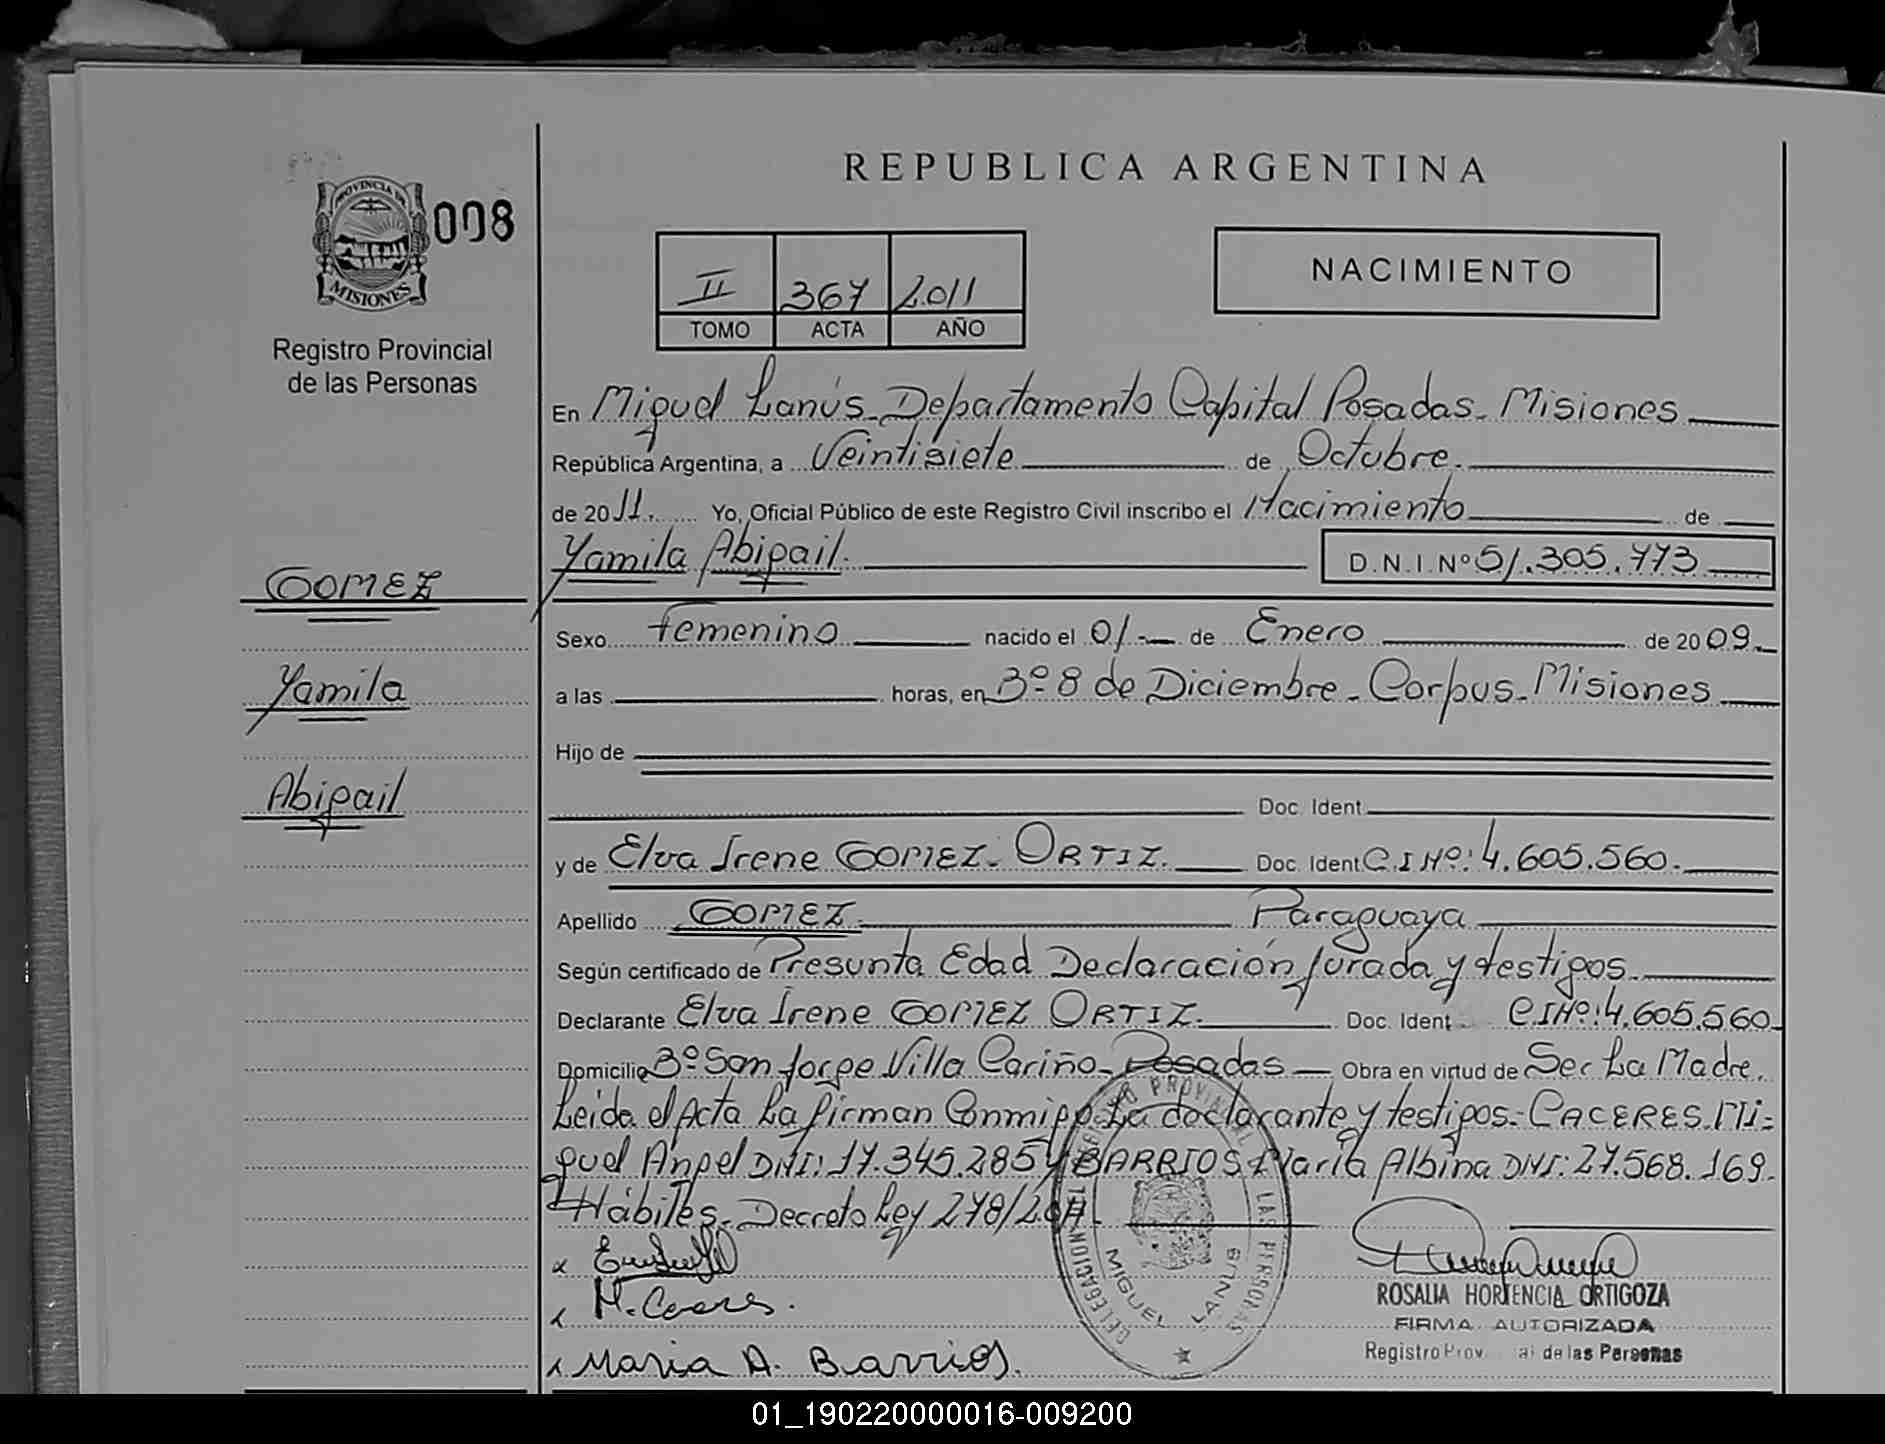 REPUBLICA ARGENTINA
PROVINCIA DE
MISIONES
008
Registro Provincial
de las Personas
II 367 2011
TOMO ACTA AÑO
NACIMIENTO
En Miguel Lanús. Departamento Capital Posadas. Misiones
República Argentina, a Veintisiete de Octubre.
de 2011. Yo, Oficial Público de este Registro Civil inscribo el Nacimiento de
Yamila Abigail. D.N.I.Nº 51.305.773
GOMEZ
Sexo Femenino nacido el 01.- de Enero de 2009.
Yamila
a las horas, en Bº 8 de Diciembre. Corpus. Misiones
Hijo de
Abigail
Doc. Ident.
y de Elva Irene GOMEZ. ORTIZ. Doc. Ident C.I Nº: 4.605.560.
Apellido GOMEZ. Paraguaya
Según certificado de Presunta Edad Declaración Jurada y testigos.
Declarante Elva Irene GOMEZ ORTIZ. Doc. Ident C.I Nº: 4.605.560
Domicilio Bº San Jorge Villa Cariño. Posadas Obra en virtud de Ser La Madre.
Leida el Acta La firman Conmigo La declarante y testigos: CACERES. Mi=
guel Angel DNI: 17.345.285 y BARRIOS Maria Albina DNI: 27.568.169.
Hábiles. Decreto Ley 278/2011.
x
x M. Caceres.
x Maria A. Barrios.
REGISTRO PROVINCIAL DE LAS PERSONAS
DELEGACION
MIGUEL LANUS
ROSALIA HORTENCIA ORTIGOZA
FIRMA AUTORIZADA
Registro Prov al de las Personas
01_190220000016-009200